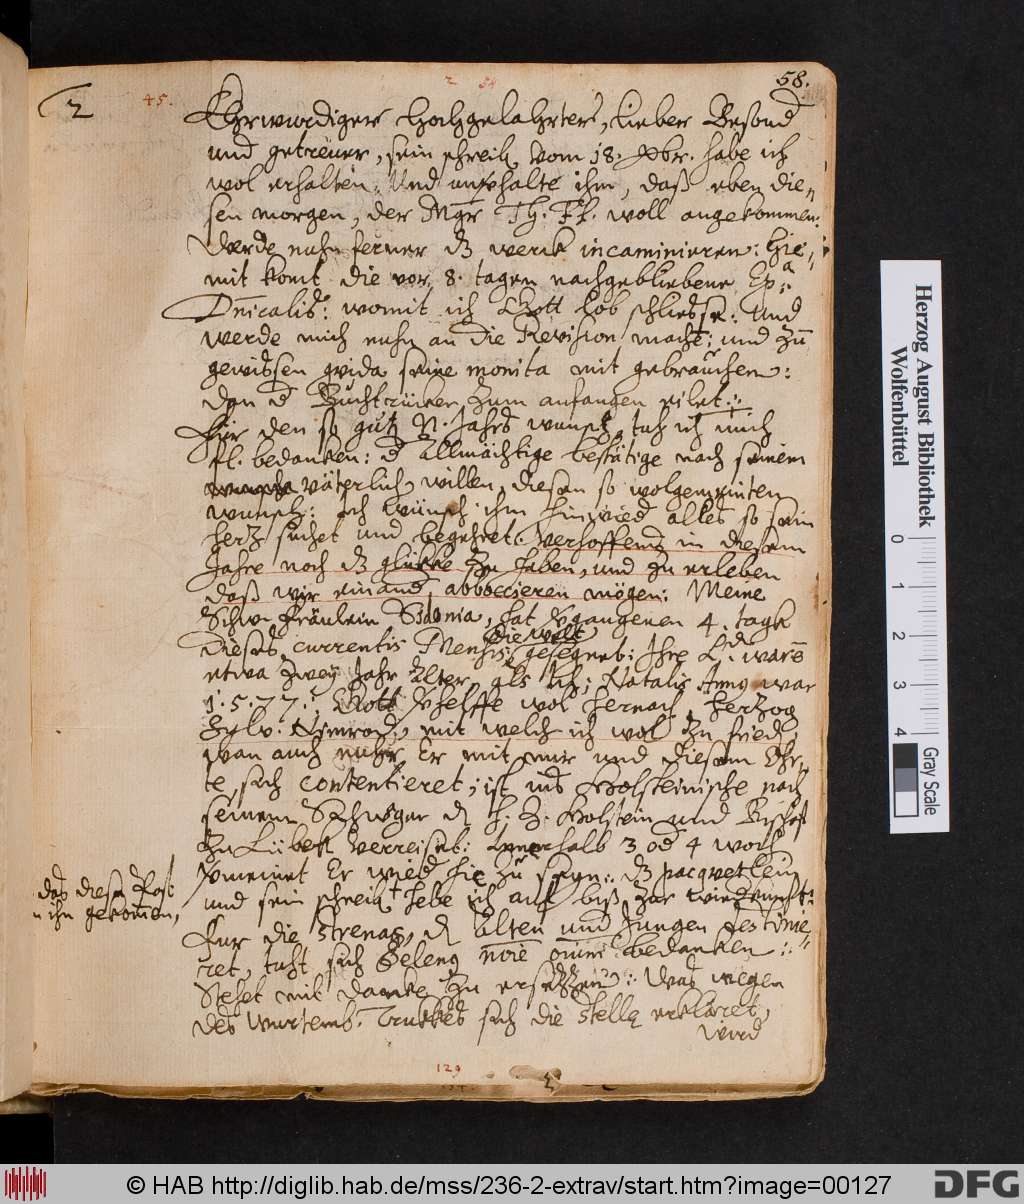 58.
2 54
2
45.
Ehrwurdiger Hochgelahrter, Lieber Besond
und getreuer, sein schreib. vom 18. Xbr. habe ich
wol erhalten; Und unverhalte ihm, daß eben die=
sen morgen, der Mgr Th. Fl. woll angekommen:
Werde nuhn ferner dz werck incaminieren: Hie=
mit komt die vor 8. tagen nachgebliebene Ep.
Dnicalis: womit ich Gott Lob schliesse: Und
werde mich nuhn an die Revision mache; und zu
gewissen seine monita mit gebrauchen:
dan d Buchtrücker zum anfangen eilet:
Für den so gutt N. Jahrs wunsch, tuh ich mich
fl. bedanken: d Allmächtige bestätige nach seinem
väterlich willen, diesen so wolgemeinten
wunsch: Ich wünsch ihm hinwied alles so sein
Hertz suchet und begehret. Verhoffend in diesem
Jahre noch dz glükke zu haben, und zu erleben
daß wir einand abboccieren mögen: Meine
Schw. Fräulein Sidonia, hat vergangenen 4. tagk
dieses currentis Mensis die welt gesegnet: Ihre Ld. wars
etwa zwey Jahr älter als Ich; Natalis Annus war
1.5.77. Gott verhelffe wol hernach. Hertzog
Sylv. Nimrod, mit welch ich wol zu fried,
wan auch nuhr Er mit mir und diesem Ohr=
te, sich contentieret; ist ins Holsteinische nach
seinem Schwager d H. Z. Holstein und Bischof
zu Lübek verreiset: Innerhalb 3 od 4 woch
vermeinet Er wied hie zu seyn: dz pacquetlein
und sein schreib hebe ich auf biß zur wiedkunft:
das diese Post
ihn gekomen,
Fur die strenas, d Alten und Jungen destinie=
ret, tuht sich Seleny noie oium bedanken:
Stehet mit danke zu ersetzen: Was wegen
des Wurtemb. Trukkes sich die Stella erkläret,
wird
129
Herzog August Bibliothek
Wolfenbüttel
0 1 2 3 4
Gray Scale
© HAB http://diglib.hab.de/mss/236-2-extrav/start.htm?image=00127
DFG